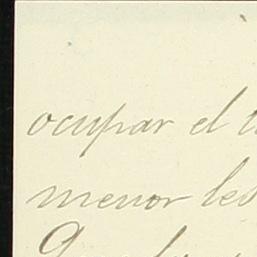 ocupar el
menor les